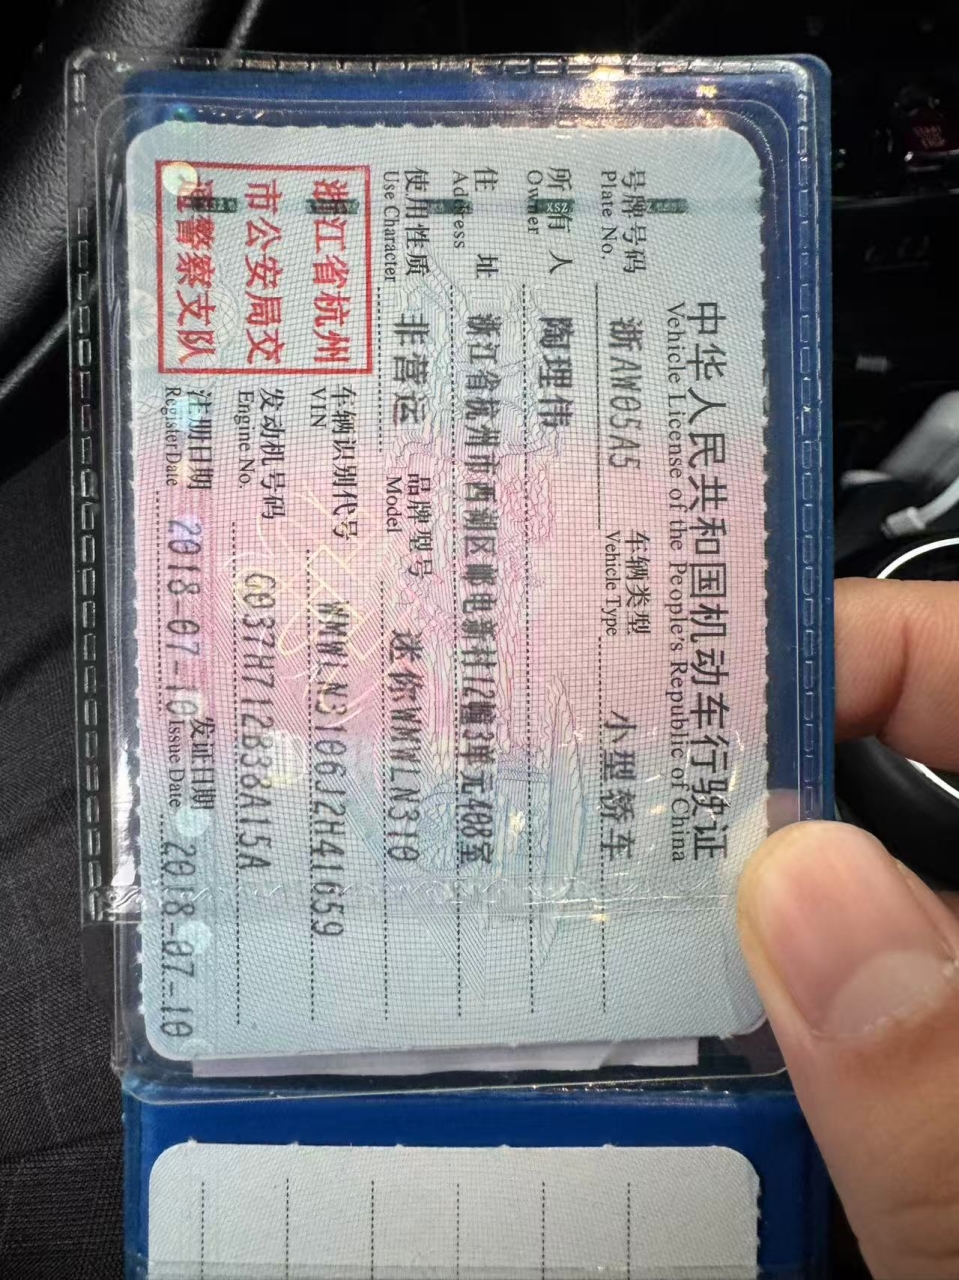 中华人民共和国机动车行驶证
Vehicle License of the People's Republic of China
号牌号码 浙AW05A5 车辆类型 小型轿车
Plate No. Vehicle Type
所有人 陶理伟
Owner
住址 浙江省杭州市西湖区邮电新村12幢3单元408室
Address
使用性质 非营运 品牌型号 迷你WMWLN310
Use Character Model
浙江省杭州
市公安局交
通警察支队
车辆识别代号 WMWLN3106J2H41659
VIN
发动机号码 G037H712B38A15A
Engine No.
注册日期 2018-07-10 发证日期 2018-07-10
Register Date Issue Date